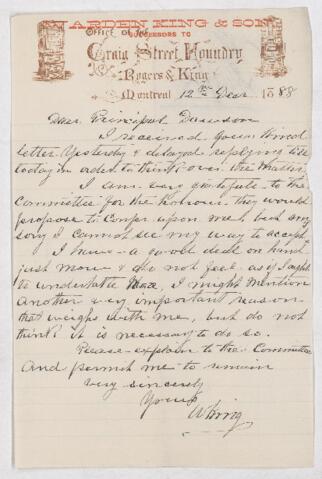 WARDEN KING & SON
Office of the SUCCESSORS TO
Craig Street Foundry
Rogers & King
Montreal 12th Decr 1888
Dear Principal Dawson
I received your kind
letter yesterday & delayed replying till
today in order to think over the matter
I am very grateful to the
Committee for the honour they would
propose to confer upon me but am
sorry I cannot see my way to accept
I have a good deal on hand
just now & do not feel as if I ought
to undertake more, I might mention
another & very important reason
that weighs with me, but do not
think it is necessary to do so.
Please explain to the Committee
and permit me to remain
Very sincerely
Yours
W King